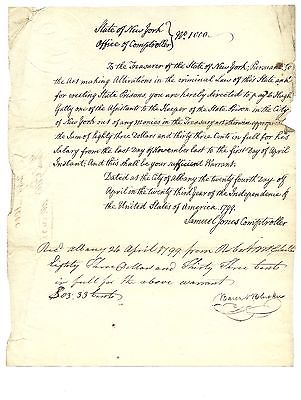 State of New York
Office of Comptroller } No. 1000.
To the Treasurer of the State of New York; Pursuant to
the Act making Alterations in the criminal Law of this State and
for erecting State Prisons, you are hereby directed to pay to Hugh
Gatly one of the Assistants to the Keeper of the State Prison in the City
of New York out of any Monies in the Treasury not otherwise appropriated
the Sum of eighty three Dollars and thirty three Cents in full for his
Salary from the last Day of November last to the first Day of April
Instant; And this shall be your sufficient Warrant.
Dated at the City of Albany the twenty fourth Day of
April in the twenty third Year of the Independence of
the United States of America. 1799.
Samuel Jones Comptroller
Recd Albany 24 April 1799 from Robert
Eighty Three Dollars and Thirty Three Cents
in full for the above warrant
$83.33 Cents